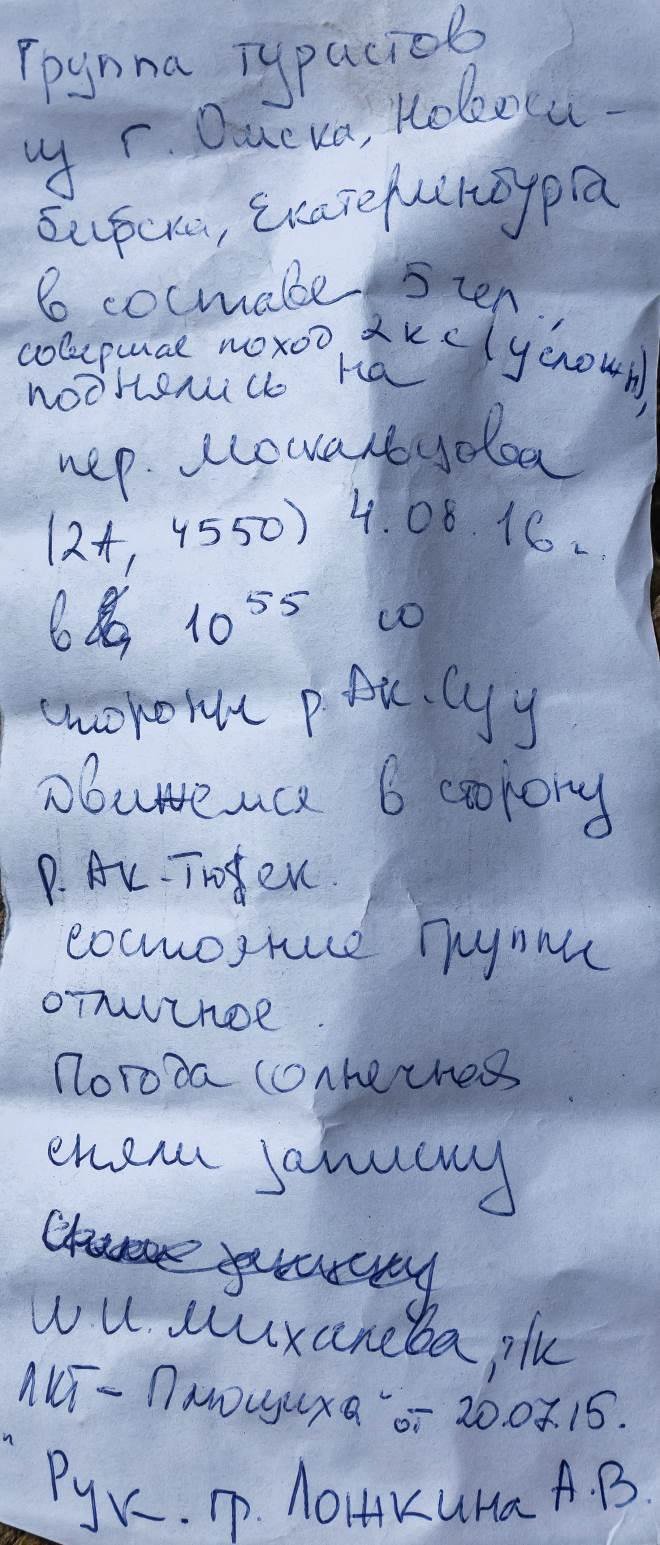 Группа туристов
из г. Омска, Новоси-
бирска, Екатеринбурга
в составе 5 чел.,
совершая поход 2 к с (усложн),
поднялись на
пер. Москальцова
(2А, 4550) 4.08.16 г.
в 10 55 со
стороны р. Ак-Суу
Движемся в сторону
р. Ак-Тюбек.
состояние группы
отличное.
Погода солнечная
сняли записку
И. И. Михалева, т/к
ЛКТ - Плющиха" от 20.07.15.
"
Рук. гр. Ложкина А.В.